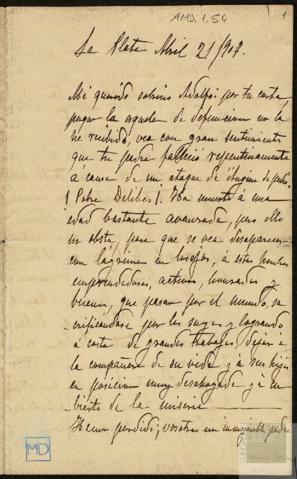 AMD.1.54
1
La Plata Abril 21/907.
Mi querido sobrino Adolfo: por tu carta,
pues la esquela de defuncion no la
he recibido, veo con gran sentimiento
que tu padre falleció repentinamente
á causa de un ataque de Angina de pecho.
¡Pobre Delibes! Ha muerto á una
edad bastante avanzada, pero ello
no obsta, para que se vea desaparecer
con lágrimas en los ojos, á estos hombres
emprendedores, activos, honrados y
buenos, que pasan por el mundo, sa-
crificandose por los suyos y logrando,
á costa de grandes trabajos, dejar á
la compañera de su vida y á sus hijos
en posicion muy desahogada y á cu-
bierto de la miseria
Habeis perdido, vosotros un inmejorable padre
MD